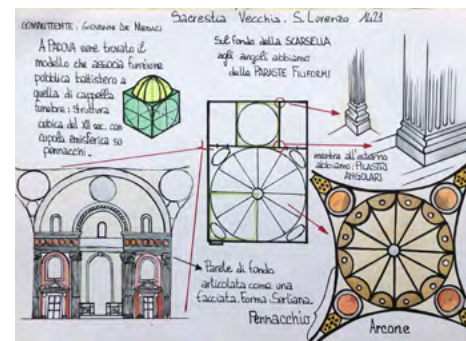 Sacrestia Vecchia. S. Lorenzo 1421
COMMITTENTE: GIOVANNI DE MEDICI
A PADOVA viene trovato il
modello che associa funzione
pubblica battistero a
quella di cappella
funebre: struttura
cubica del XII sec. con
cupola emisferica su
pennacchi.
Sul fondo della SCARSELLA
agli angoli abbiamo
delle PARASTE FILIFORMI
mentre all'esterno
abbiamo: PILASTRI
ANGOLARI
Parete di fondo
articolata come una
facciata. Forma: Serliana.
Pennacchio
Arcone